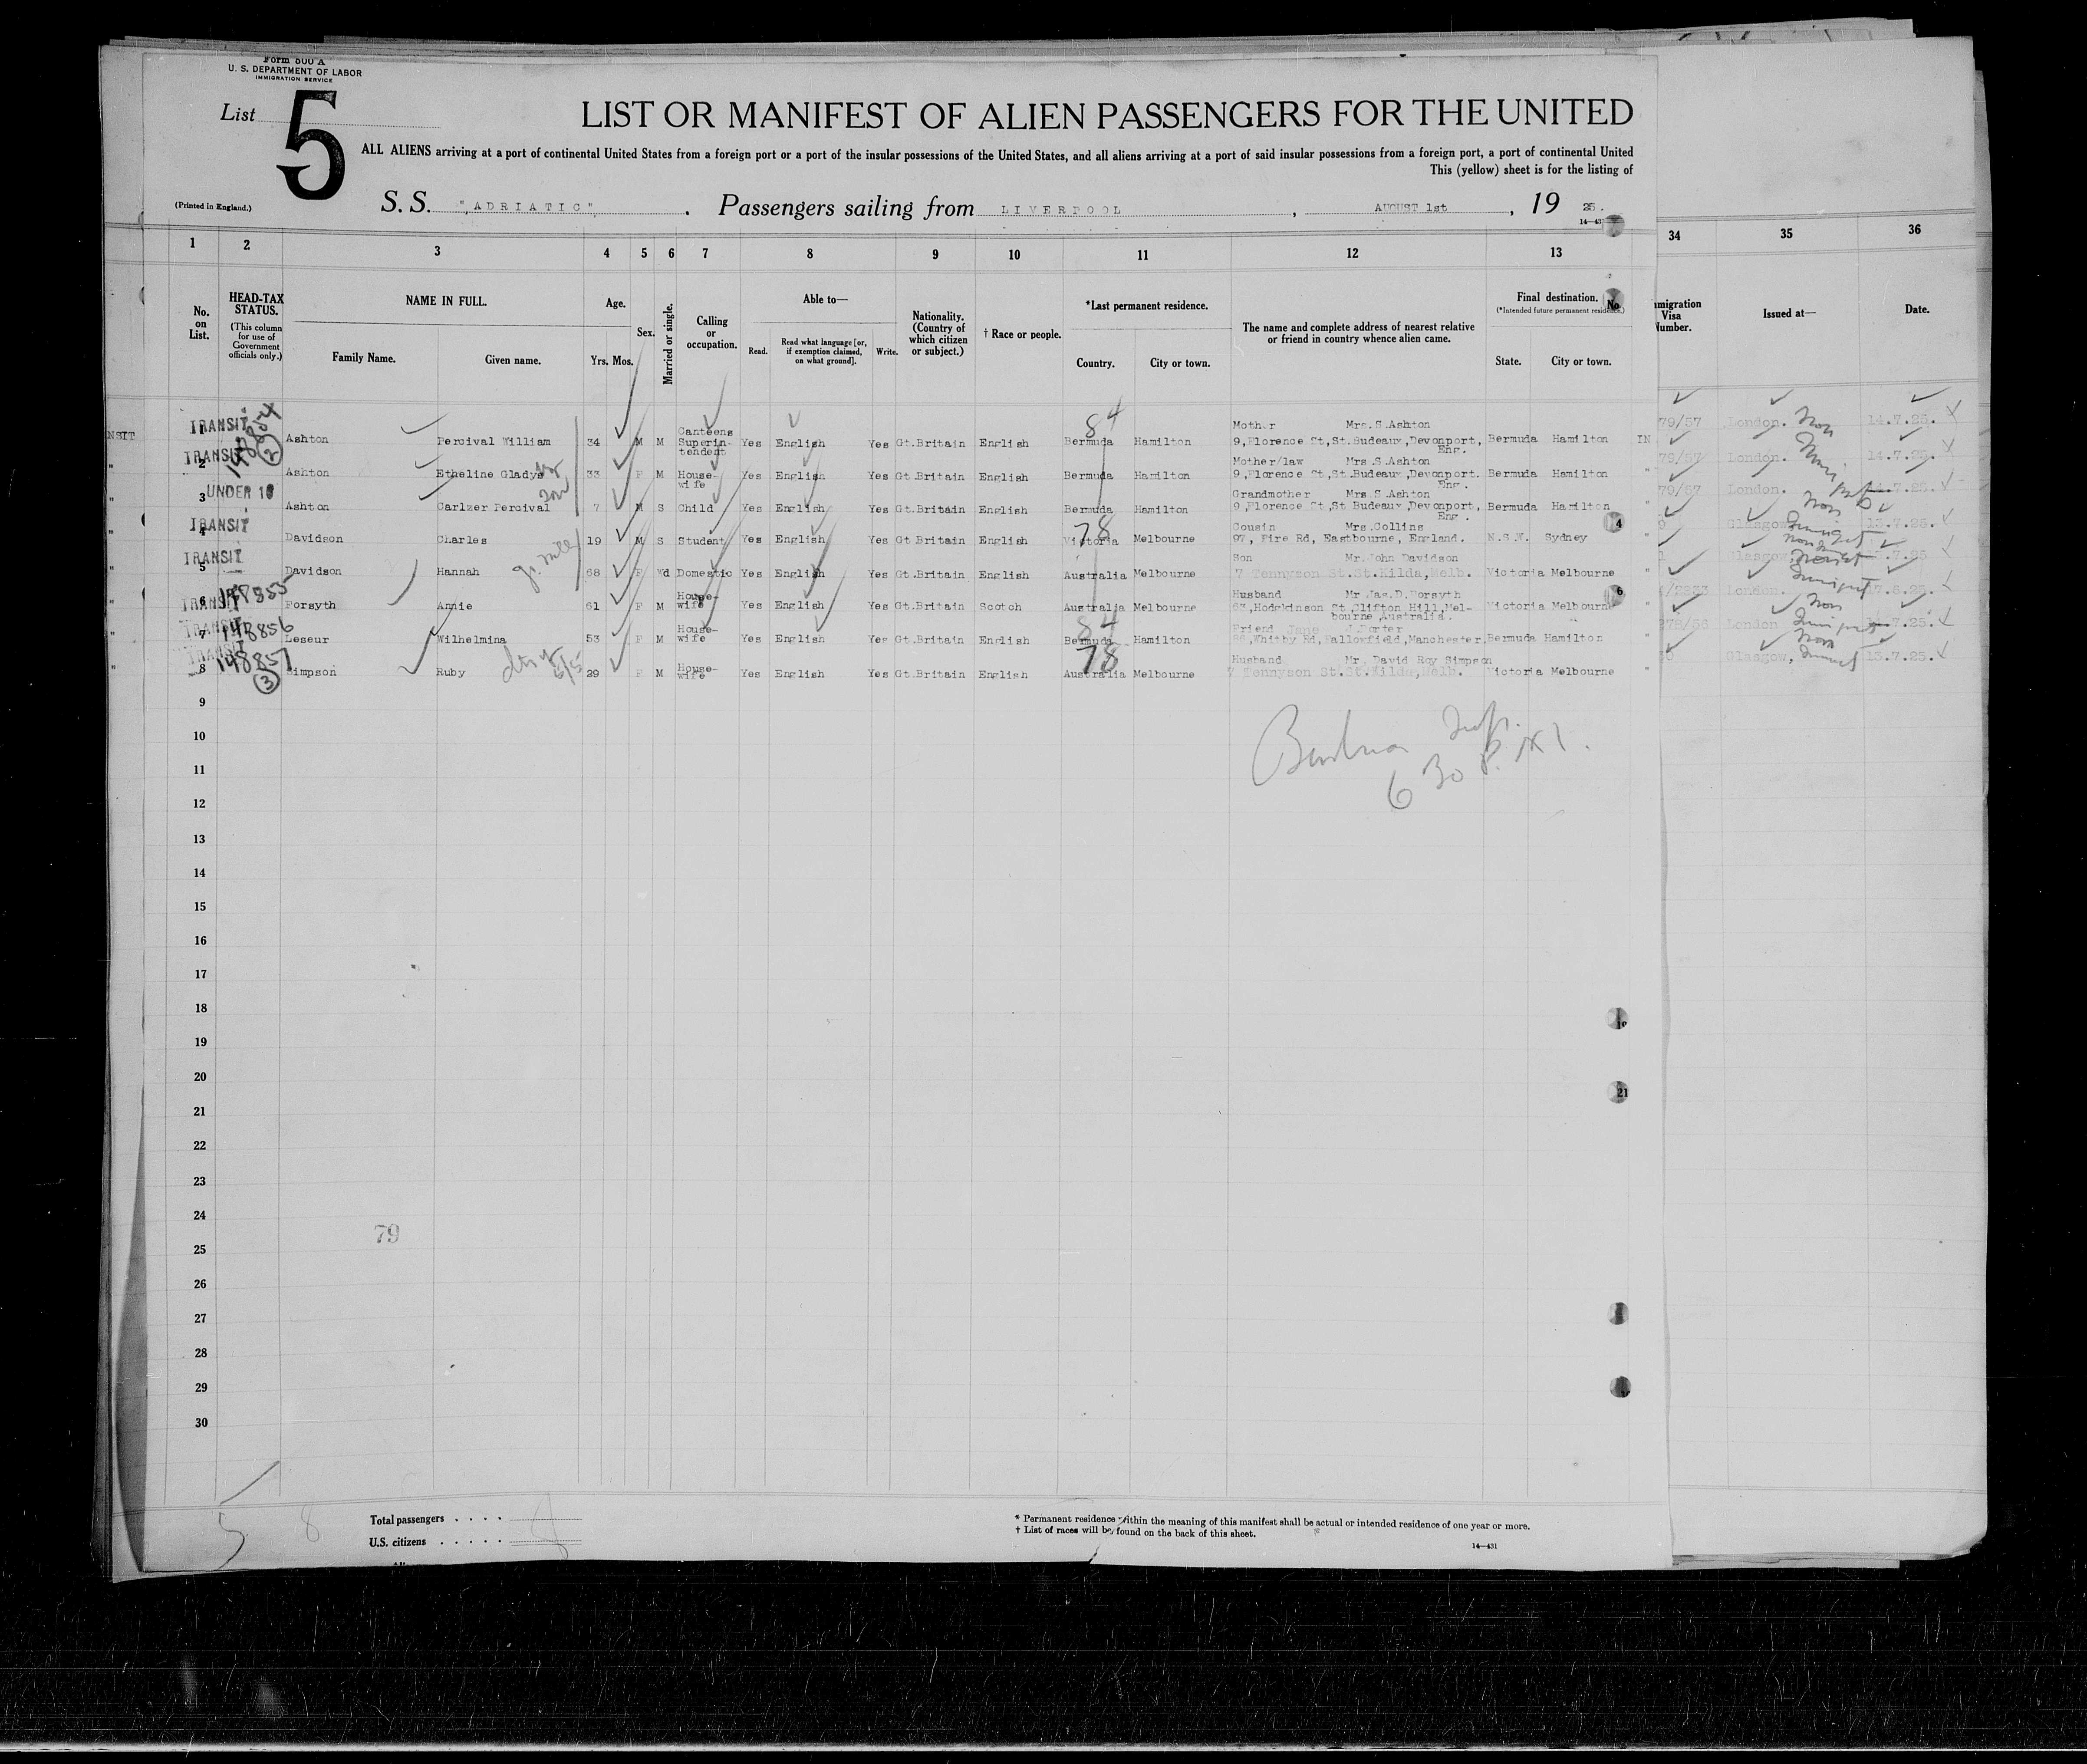 Form 500 A
U. S. DEPARTMENT OF LABOR
IMMIGRATION SERVICE
List 5
LIST OR MANIFEST OF ALIEN PASSENGERS FOR THE UNITED
ALL ALIENS arriving at a port of continental United States from a foreign port or a port of the insular possessions of the United States, and all aliens arriving at a port of said insular possessions from a foreign port, a port of continental United
This (yellow) sheet is for the listing of
(Printed in England.)
S. S. "ADRIATIC" . Passengers sailing from LIVERPOOL , AUGUST 1st , 19 25.
1 2 3 4 5 6 7 8 9 10 11 12 13 34 35 36
No. on List.
HEAD-TAX STATUS.
(This column for use of Government officials only.)
NAME IN FULL.
Family Name. Given name.
Age.
Yrs. Mos.
Sex.
Married or single.
Calling or occupation.
Able to—
Read. Read what language [or, if exemption claimed, on what ground]. Write.
Nationality. (Country of which citizen or subject.)
† Race or people.
*Last permanent residence.
Country. City or town.
The name and complete address of nearest relative or friend in country whence alien came.
Final destination.
(*Intended future permanent residence.)
State. City or town.
No.
mmigration Visa Number.
Issued at—
Date.
TRANSIT 1 Ashton Percival William 34 M M Canteens Superin-tendent Yes English Yes Gt.Britain English Bermuda Hamilton Mother Mrs.S.Ashton 9,Florence St,St.Budeaux,Devonport, Eng. Bermuda Hamilton 79/57 London. 14.7.25.
TRANSIT 2 Ashton Etheline Gladys 33 F M House-wife Yes English Yes Gt.Britain English Bermuda Hamilton Mother/law Mrs.S.Ashton 9,Florence St,St.Budeaux,Devonport. Eng. Bermuda Hamilton " 79/57 London. 14.7.25.
UNDER 16 3 Ashton Carlzer Percival 7 M S Child Yes English Yes Gt.Britain English Bermuda Hamilton Grandmother Mrs.S.Ashton 9,Florence St,St Budeaux,Devonport, Eng. Bermuda Hamilton " 79/57 London. 14.7.25.
TRANSIT 4 Davidson Charles 19 M S Student Yes English Yes Gt Britain English Victoria Melbourne Cousin Mrs.Collins 97, Fire Rd, Eastbourne, England. N.S.W. Sydney " Glasgow 13.7.25.
TRANSIT 5 Davidson Hannah 68 F Wd Domestic Yes English Yes Gt.Britain English Australia Melbourne Son Mr.John Davidson 7 Tennyson St.St.Kilda,Melb. Victoria Melbourne " Glasgow .7.25
TRANSIT 6 148855 Forsyth Annie 61 F M House-wife Yes English Yes Gt.Britain Scotch Australia Melbourne Husband Mr.Jas.D.Forsyth 67,Hodgkinson St,Clifton Hill,Mel-bourne,Australia. Victoria Melbourne " London.
TRANSIT 7 148856 Leseur Wilhelmina 53 F M House-wife Yes English Yes Gt.Britain English Bermuda Hamilton Friend Jane J.Porter Whitby Rd,Fallowfield,Manchester, Bermuda Hamilton " 278/56 London .7.25.
TRANSIT 8 148857 3 Simpson Ruby 29 F M House-wife Yes English Yes Gt.Britain English Australia Melbourne Husband Mr David Roy Simpson 7 Tennyson St.St.Kilda,Melb. Victoria Melbourne " Glasgow, 13.7.25.
84
78
84
78
9
10
6 30 P.M.
11
12
13
14
15
16
17
18
19
20
21
22
23
24
79
25
26
27
28
29
30
5 8
Total passengers . . . .
U.S. citizens . . . . .
* Permanent residence within the meaning of this manifest shall be actual or intended residence of one year or more.
† List of races will be found on the back of this sheet.
14—431